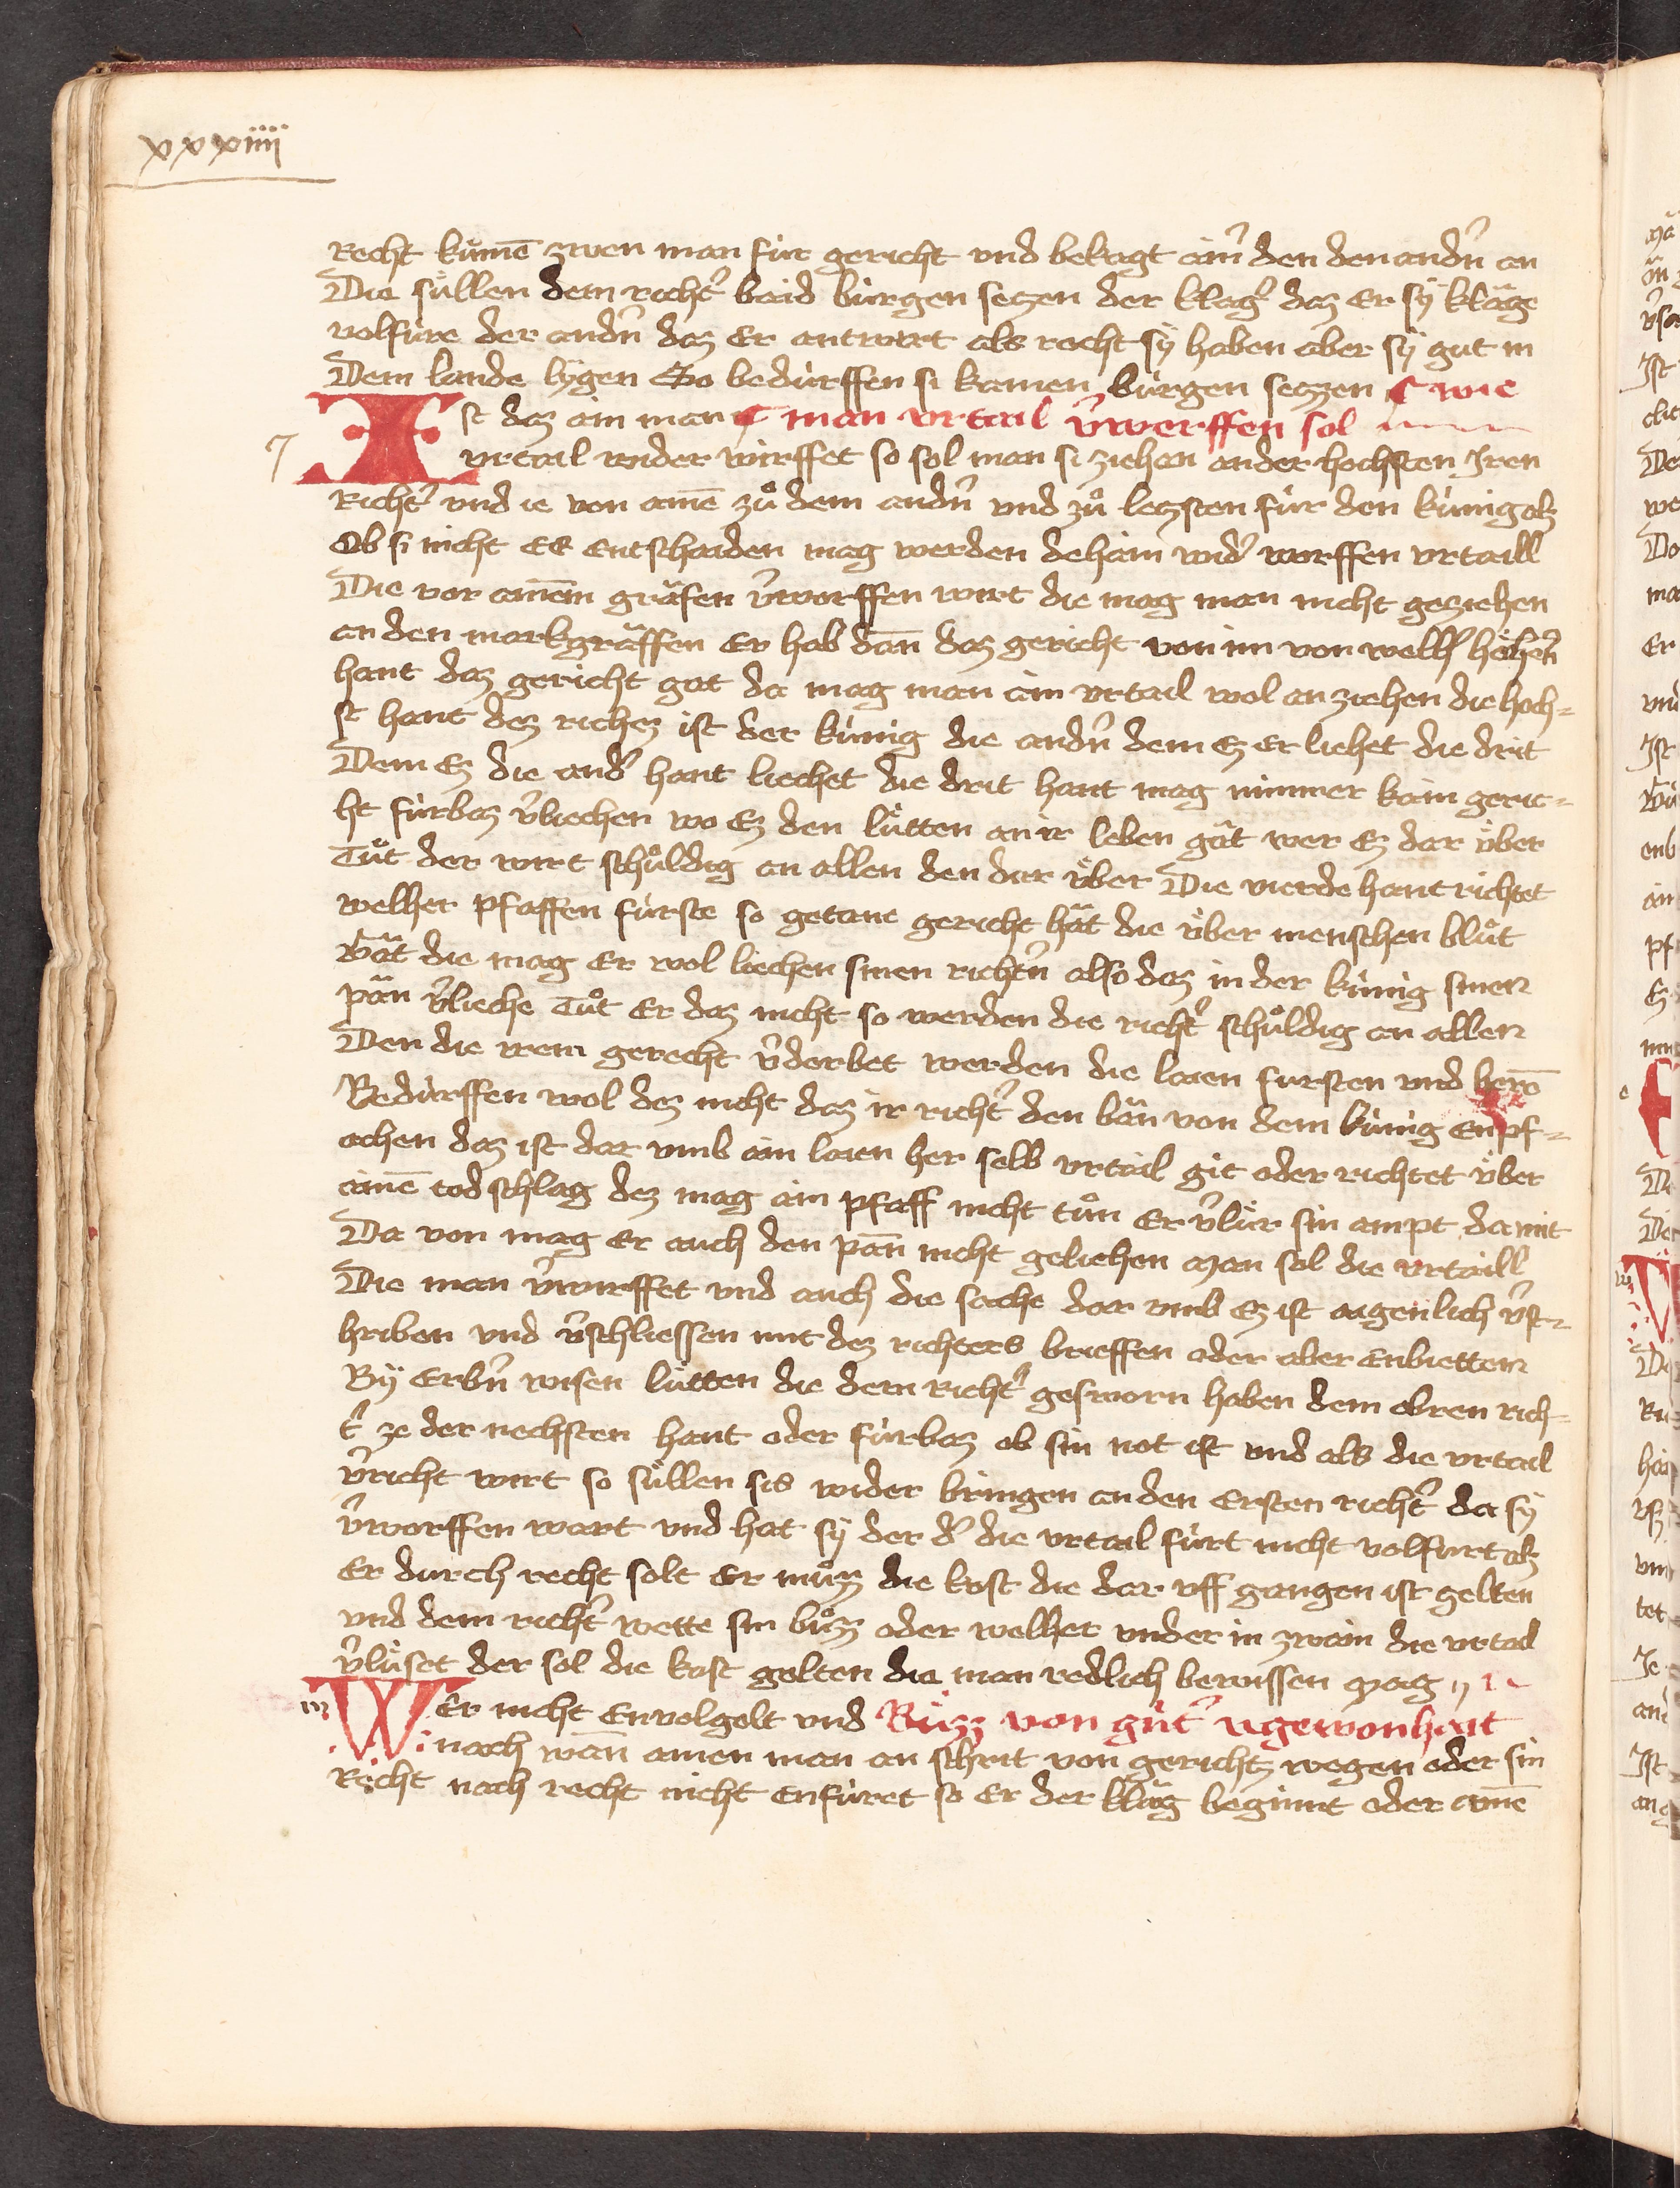 xxxiiii
Recht kumē zwen man für gericht vnd beklagt ainˀ den den andn̄ an
Die süllen dem richtˀ baid bürgen seczen der klagˀ daz Er sÿ kläge
volfüre der andn̄ daz Er antwrt als recht sÿ haben aber sÿ gut in
Dem lande lÿgen So bedürffen si kainen bürgen seczzen ¶ wie
Ist daz ain man ¶ man vrtail v̄werffen sol
vrtail wider wirffet so sol man si ziehen an der hochsten Iren
Richtˀ vnd ie von aim̄e zů dem andn̄ vnd zů leczsten für den künig alz
Ob si nicht EE Entschaiden mag werden dehain widˀ worffen vrtaill
Die vor ainem gräfen v̄worffen wirt die mag man nicht geziehen
an den markgräffen Er hab dan̄ daz gericht von im von wellhˀ höhen̄
hant daz gericht gat da mag man ain vrtail wol an ziehen die hoch=
st hant dez richez ist der künig die andn̄ dem Ez Er lichet die drit
Dem Ez die andˀ hant liechet die drit hant mag nimmer kain geric=
ht fürbaz v̄liechen wo Ez den lütten an ir leben gät wer Ez dar über
Tůt der wirt schuldig an allen den dar über Die vierde hant richtet
welher pfaffen fürste so getane gericht hät die über menschen blůt
Gät die mag Er wol liechen sinen richtn̄ also daz in der künig sinen
pän v̄lieche Tůt Er daz nicht so werden die richtˀ schuldig an allen
Den die vrem gerecht v̄derbet werden die laien fursten vnd herē
Bedürffen wol dez nicht daz ir richtˀ den bän von dem künig Enpf=
achen daz ist dar vmb ain laien her selb vrtail git oder richtet über
ainē todschlag dez mag ain pfaff nicht tůn Er v̄lür sin ampt da mit
Da von mag Er auch den pan̄ nicht geliehen Man sol die vrtaill
Die man v̄wirffet vnd auch die sache dar vmb Ez ist aigenlich v̄sc=
hriben vnd v̄schliessen mit dez richters brieffen oder aber Enbietten
Bÿ Erbn̄ wisen lütten die dem Richtˀ gesworn haben dem obren rich=
tˀ ze der nechsten hant oder fürbaz ob sin not ist vnd als die vrtail
v̄richt wirt so süllen sis wider bringen an den Ersten richtˀ da sÿ
v̄worffen wart vnd hat sÿ der dˀ die vrtail fürt nicht volfurt alz
Er durch recht solt Er můz die kost die dar vff gangen ist gelten
vnd dem richtˀ wette sin bůz oder welher vnder in zwain die vrtail
v̄lüset der sol die kost gelten die man redlich bewissen mag
WEr nicht Envolgolt vnd Büzz von gůtˀ ugewonhait
nach wan̄ ainen man an schrit von gerichtz wegen oder sin
Recht nach recht nicht enfüret so Er der kläg beginnt oder ainē